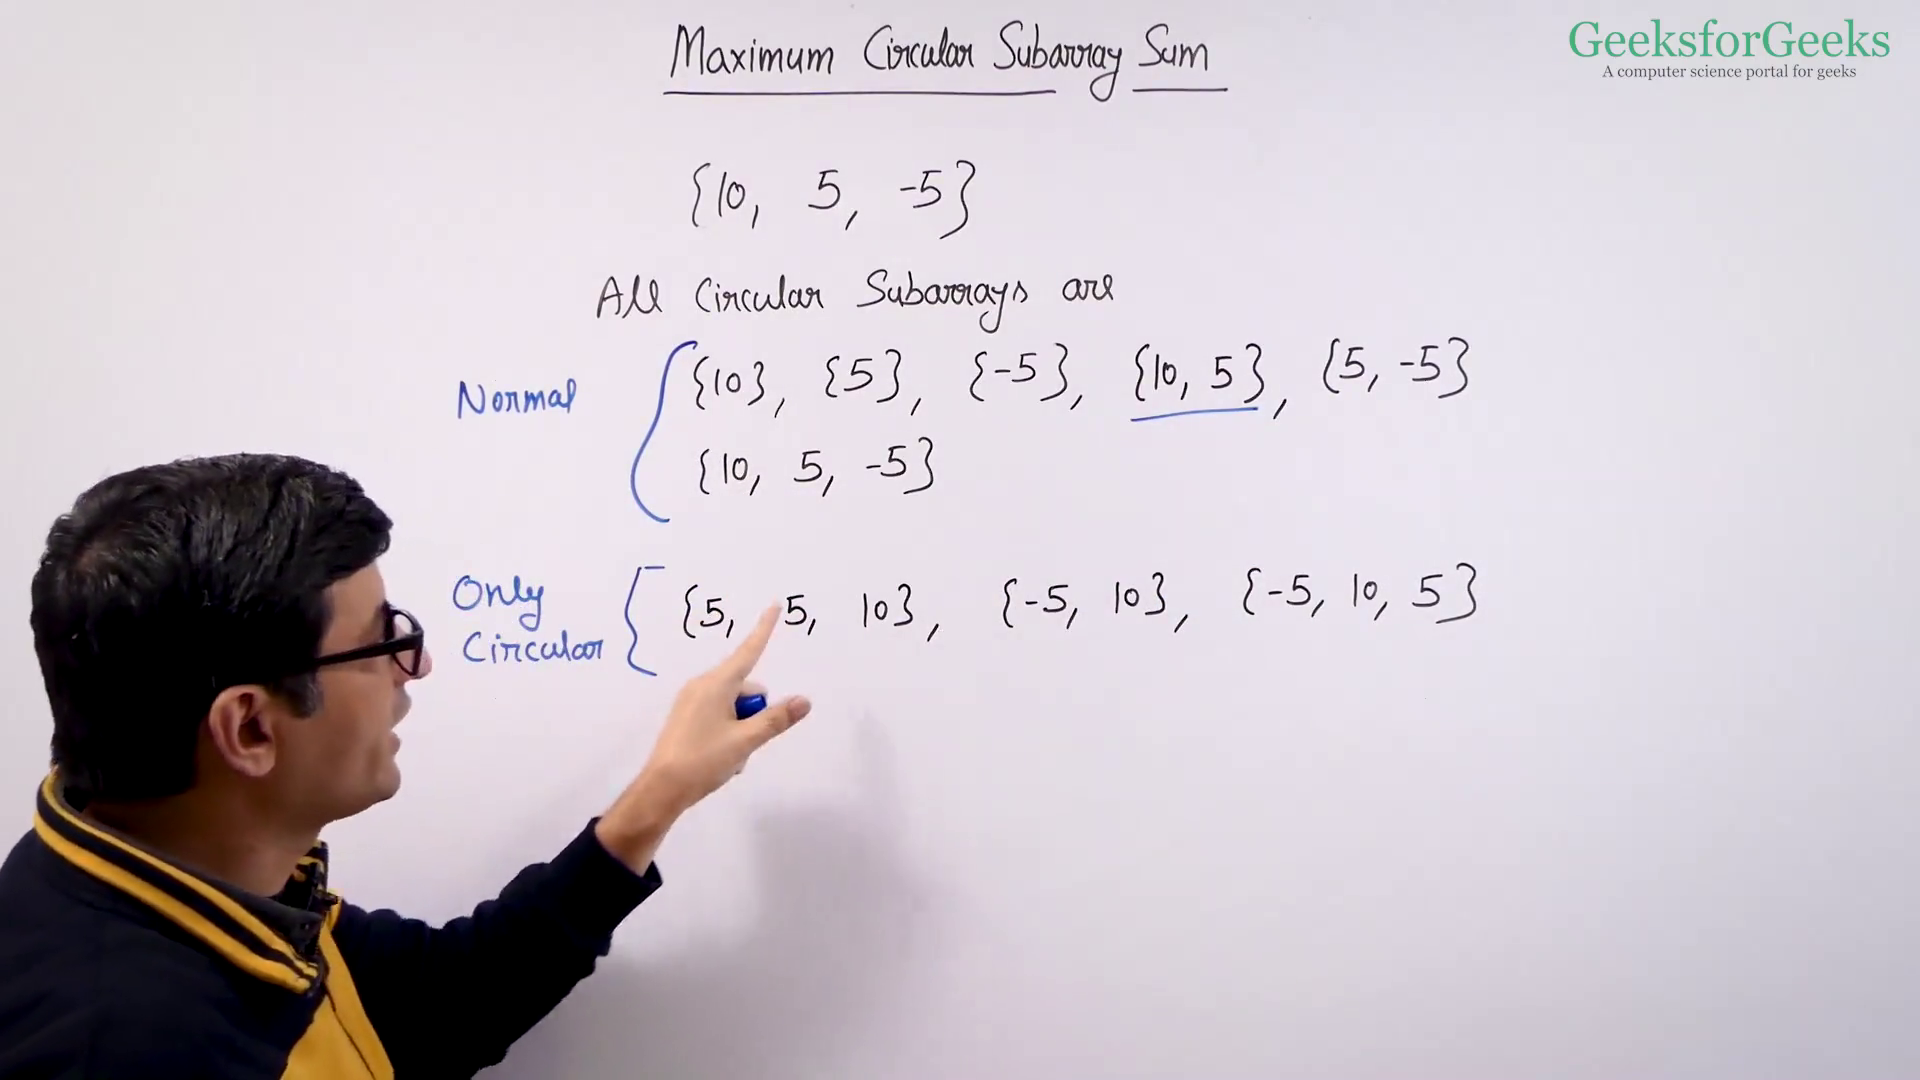 Maximum Circular Subarray Sum
GeeksforGeeks
A computer science portal for geeks
{10, 5, -5}
All Circular Subarrays are
Normal {10}, {5}, {-5}, {10, 5}, {5, -5}
{10, 5, -5}
Only Circular {5, 5, 10}, {-5, 10}, {-5, 10, 5}